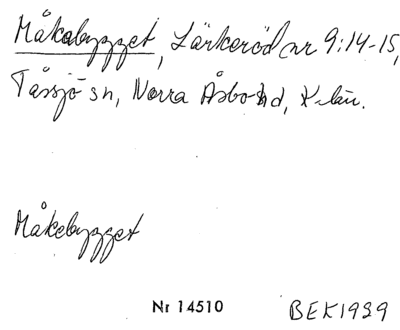 Måkabygget, Lärkeröd nr 9:14-15,
Tåssjö sn, Norra Åsbo hd, K-län.
Måkabygget
Nr 14510 BEK1939